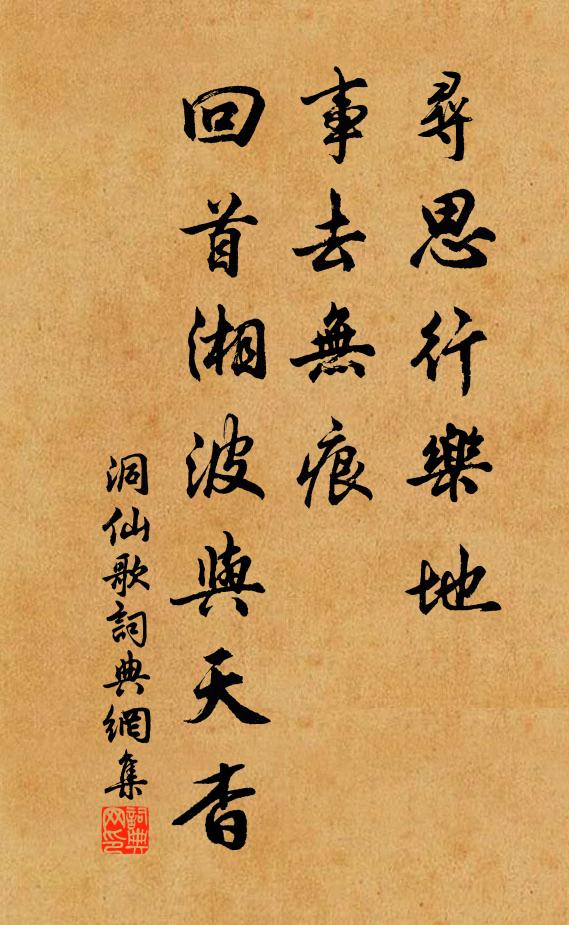 尋思行樂地
事去無痕
回首湘波與天杳
洞仙歌詞典網集
詞典
网印